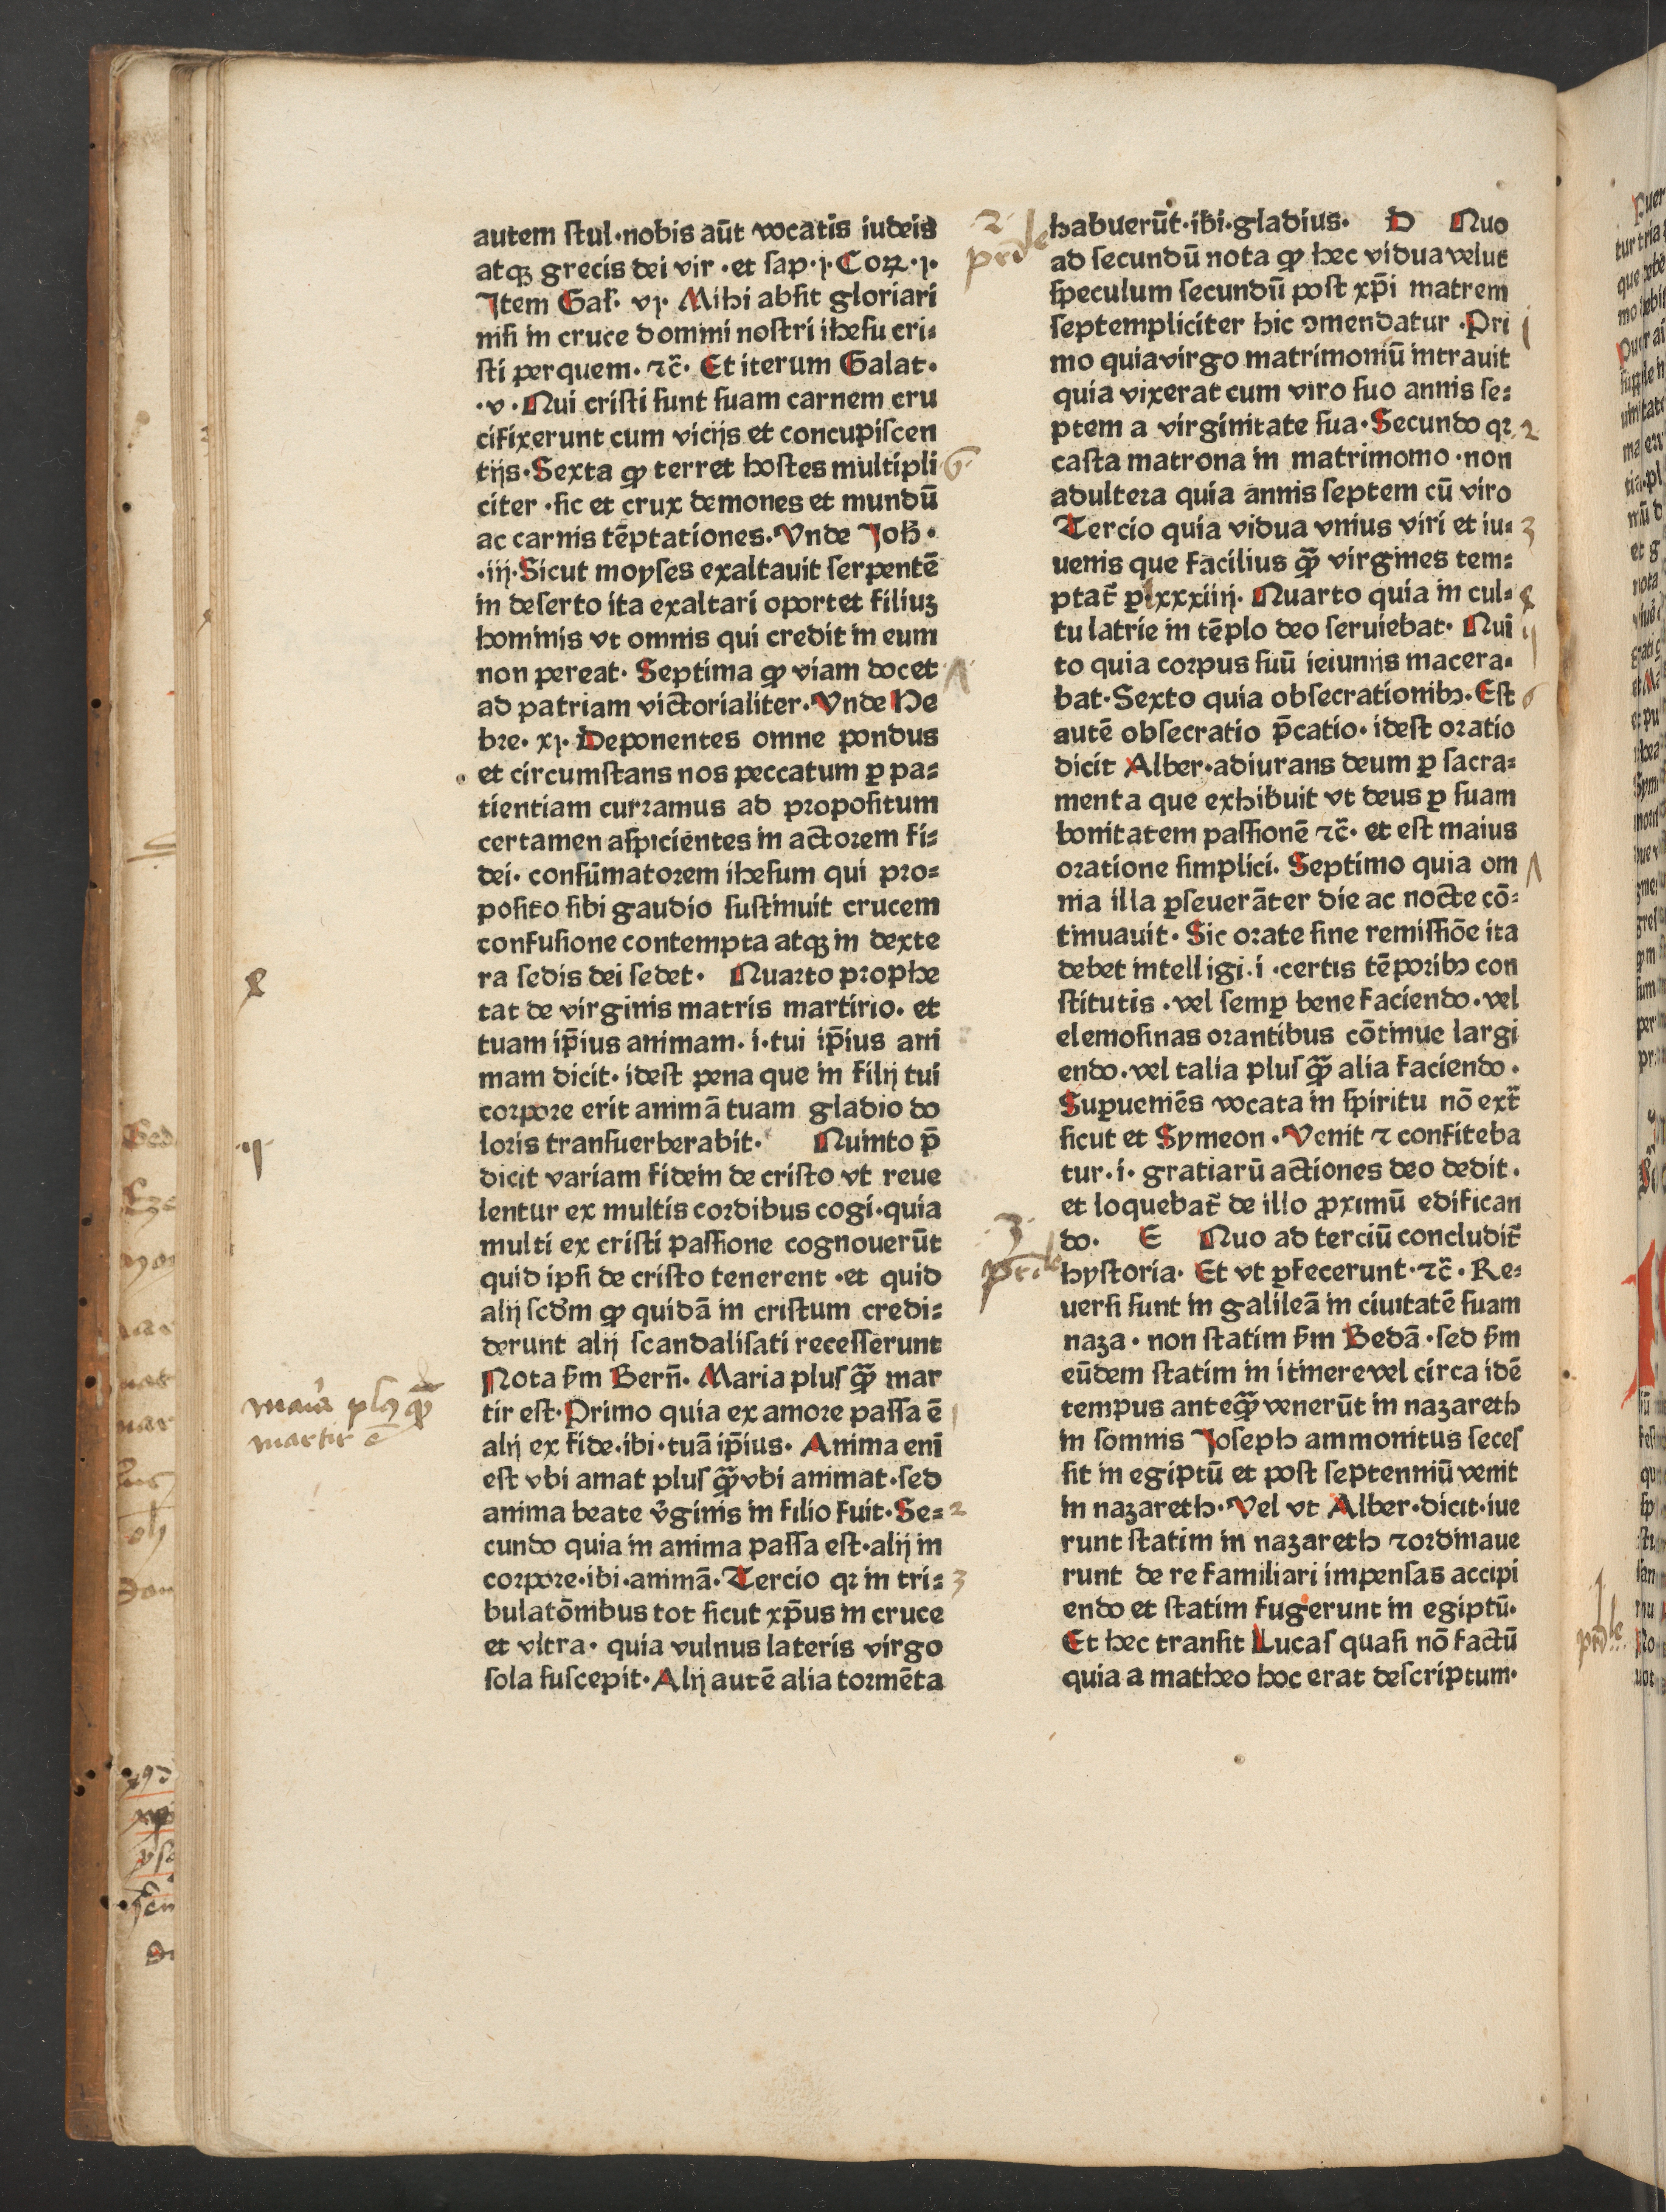 autem ſtul·nobis aūt vocatis iudeis
atqꝫ grecis dei vir ·et ſap·j·Coꝝ·j·
Jtem Gal̄· vj· Mihi abſit gloriari
niſi in cruce domini noſtri iheſu cri⸗
ſti per quem· ⁊c̄· Et iterum Galat·
·v·Qui criſti ſunt ſuam carnem cru
cifixerunt cum vicijs et concupiſcen
tijs·Sexta ꝙ terret hoſtes multipli
citer ·ſic et crux demones et mundū
ac carnis tēptationes·Vnde Joh̄·
·iij·Sicut moyſes exaltauit ſerpentē
in deſerto ita exaltari oportet filiuꝫ
hominis vt omnis qui credit in eum
non pereat· Septima ꝙ viam docet
ad patriam victorialiter·Vnde He
bre· xj· Deponentes omne pondus
et circumſtans nos peccatum ꝑ pa⸗
tientiam curramus ad propoſitum
certamen aſpicientes in actorem fi⸗
dei· conſūmatorem iheſum qui pro⸗
poſito ſibi gaudio ſuſtinuit crucem
confuſione contempta atqꝫ in dexte
ra ſedis dei ſedet· Quarto prophe
tat de virginis matris martirio· et
tuam ip̄ius animam· i·tui ip̄ius ani
mam dicit· ideſt pena que in filij tui
corpore erit animā tuam gladio do
loris tranſuerberabit· Quinto p̄
dicit variam fidem de criſto vt reue
lentur ex multis cordibus cogi·quia
multi ex criſti paſſione cognouerūt
quid ipſi de criſto tenerent ·et quid
alij ſcdm̄ ꝙ quidā in criſtum credi⸗
derunt alij ſcandaliſati receſſerunt
Nota ẜm Bern̄· Maria pluſ ꝙ̄ mar
tir eſt·Primo quia ex amore paſſa ē
alij ex fide·ibi·tuā ip̄ius· Anima eni
eſt vbi amat pluſ ꝙ̄ vbi animat·ſed
anima beate v̓ginis in filio fuit·Se⸗
cundo quia in anima paſſa eſt·alij in
corpore·ibi·animā·Tercio qꝛ in tri⸗
bulatōnibus tot ſicut xp̄us in cruce
et vltra· quia vulnus lateris virgo
ſola ſuſcepit·Alij autē alia tormēta
maria plꝰ ꝙ̄
martir ē
habuerūt·ibi·gladius· D Quo
ad ſecundū nota ꝙ hec vidua velut
ſpeculum ſecundū poſt xp̄i matrem
ſeptempliciter hic ꝯmendatur ·Pri
mo quia virgo matrimoniū intrauit
quia vixerat cum viro ſuo annis ſe⸗
ptem a virginitate ſua·Secundo qꝛ
caſta matrona in matrimonio ·non
adultera quia annis ſeptem cū viro
Tercio quia vidua vnius viri et iu⸗
uenis que facilius ꝙ̄ virgines tem⸗
ptat̄ ꝑ lxxxiiij· Quarto quia in cul⸗
tu latrie in tēplo deo ſeruiebat· Qui
to quia corpus ſuū ieiuniis macera⸗
bat·Sexto quia obſecrationibꝫ·Eſt
autē obſecratio p̄catio· ideſt oratio
dicit Alber·adiurans deum ꝑ ſacra⸗
menta que exhibuit vt deus ꝑ ſuam
bonitatem paſſionē ⁊c̄· et eſt maius
oratione ſimplici· Septimo quia om
nia illa ꝑſeuerāter die ac nocte cō⸗
tinuauit· Sic orate ſine remiſſiōe ita
debet intelligi·i·certis tēporibꝫ con
ſtitutis ·vel ſemꝑ bene faciendo·vel
elemoſinas orantibus cōtinue largi
endo·vel talia pluſ ꝙ̄ alia faciendo·
Suꝑueniēs vocata in ſpiritu nō ext̄
ſicut et Symeon ·Venit ⁊ confiteba
tur·i· gratiarū actiones deo dedit·
et loquebat̄ de illo ꝓximū edifican
do· E Quo ad terciū concludit̄
hyſtoria· Et vt ꝑfecerunt·⁊c̄·Re⸗
uerſi ſunt in galileā in ciuitatē ſuam
naza· non ſtatim ẜm Bedā·ſed ẜm
eūdem ſtatim in itinere vel circa idē
tempus anteꝙ̄ venerūt in nazareth
in ſomnis Joſeph ammonitus ſeceſ
ſit in egiptū et poſt ſeptenniū venit
in nazareth·Vel vt Alber·dicit·iue
runt ſtatim in nazareth ⁊ordinaue
runt de re familiari impenſas accipi
endo et ſtatim fugerunt in egiptū·
Et hec tranſit Lucaſ quaſi nō factū
quia a matheo hoc erat deſcriptum·